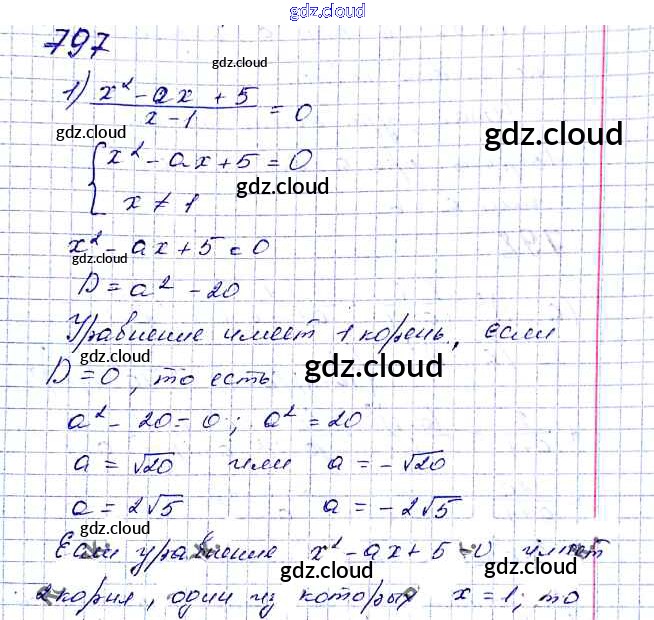 gdz.cloud
797
gdz.cloud
1) x² - ax + 5 / x - 1 = 0
gdz.cloud
gdz.cloud
{ x² - ax + 5 = 0
x ≠ 1
gdz.cloud
x² - ax + 5 = 0
gdz.cloud
D = a² - 20
Уравнение имеет 1 корень, если
gdz.cloud
gdz.cloud
D = 0, то есть
a² - 20 = 0; a² = 20
gdz.cloud
a = √20 или a = -√20
a = 2√5 a = -2√5
gdz.cloud
gdz.cloud
Если уравнение x² - ax + 5 = 0 имеет
gdz.cloud
2 корня, один из которых x = 1, то